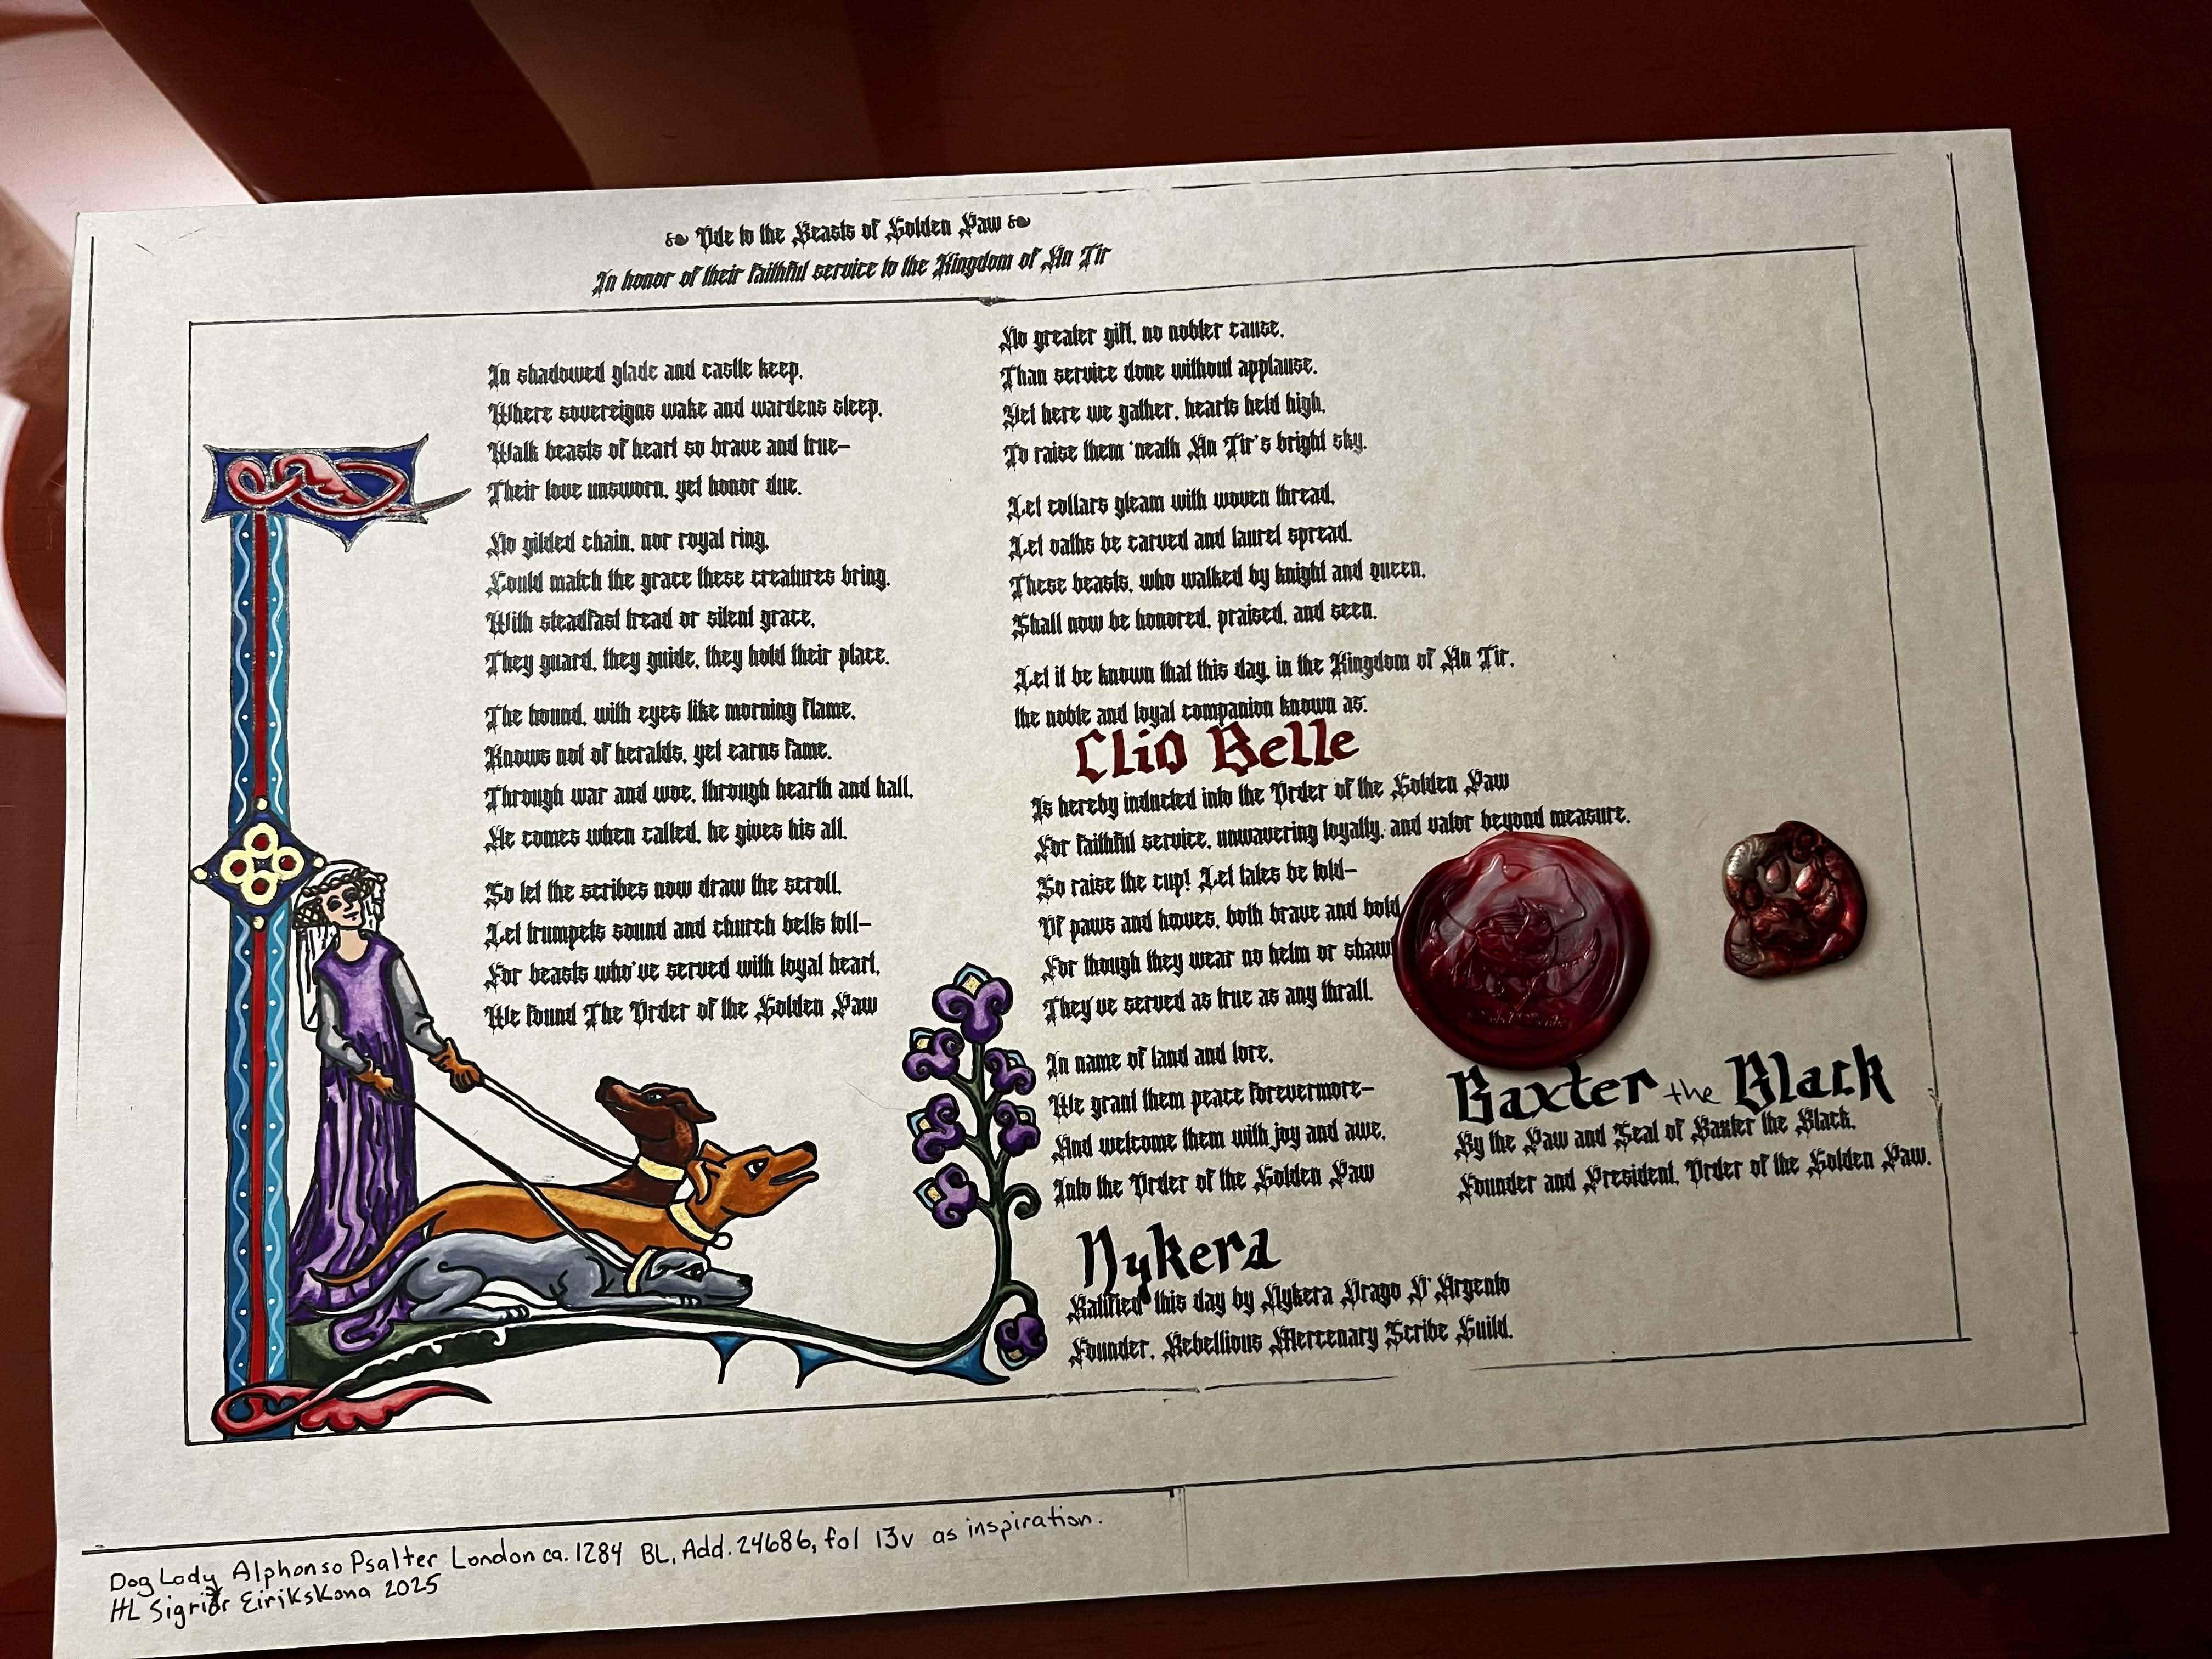 Ode to the Beasts of Golden Paw
In honor of their faithful service to the Kingdom of An Tir
In shadowed glade and castle keep,
Where sovereigns wake and wardens sleep,
Walk beasts of heart so brave and true—
Their love unsworn, yet honor due.
No gilded chain, nor royal ring,
Could match the grace these creatures bring.
With steadfast tread or silent grace,
They guard, they guide, they hold their place.
The hound, with eyes like morning flame,
Knows not of heralds, yet earns fame.
Through war and woe, through hearth and hall,
He comes when called, he gives his all.
So let the scribes now draw the scroll,
Let trumpets sound and church bells toll—
For beasts who've served with loyal heart,
We found The Order of the Golden Paw
No greater gift, no nobler cause,
Than service done without applause.
Yet here we gather, hearts held high,
To raise them 'neath An Tir's bright sky.
Let collars gleam with woven thread,
Let oaths be carved and laurel spread.
These beasts, who walked by knight and queen,
Shall now be honored, praised, and seen.
Let it be known that this day, in the Kingdom of An Tir,
the noble and loyal companion known as:
Clio Belle
Is hereby inducted into the Order of the Golden Paw
For faithful service, unwavering loyalty, and valor beyond measure.
So raise the cup! Let tales be told—
Of paws and hooves, both brave and bold
For though they wear no helm or shaw
They've served as true as any thrall.
In name of land and lore,
We grant them peace forevermore—
And welcome them with joy and awe,
Into the Order of the Golden Paw
Nykera
Ratified this day by Nykera Drago D'Argento
Founder, Rebellious Mercenary Scribe Guild.
Baxter the Black
By the Paw and Seal of Baxter the Black,
Founder and President, Order of the Golden Paw.
Dog Lady Alphonso Psalter London ca. 1284 BL, Add. 24686, fol 13v as inspiration.
HL Sigriðr Eirikskona 2025